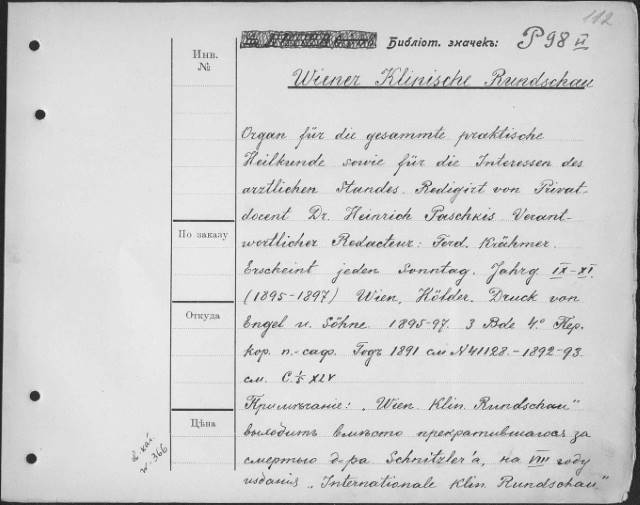 112
Библіот. значекъ: P 98 II
Инв. №
Wiener Klinische Rundschau
Organ für die gesammte praktische
Heilkunde sowie für die Interessen des
arztlichen Standes. Redigirt von Privat-
docent Dr. Heinrich Paschkis Verant-
По заказу
wortlicher Redacteur: Ferd. Krähmer.
Erscheint jeden Sonntag. Jahrg IX-XI.
(1895-1897) Wien, Hölder. Druck von
Откуда
Engel u. Söhne. 1895-97. 3 Bde 4.º Пер.
кор. п.-саф. Годъ 1891 см N 41128.-1892-93.
см. XLV
Примѣчаніе: "Wien. Klin. Rundschau"
Цѣна
выходитъ вмѣсто прекратившагося за
смертью д-ра Schnitzler'a, на VIII году
изданія "Internationale Klin. Rundschau"
366